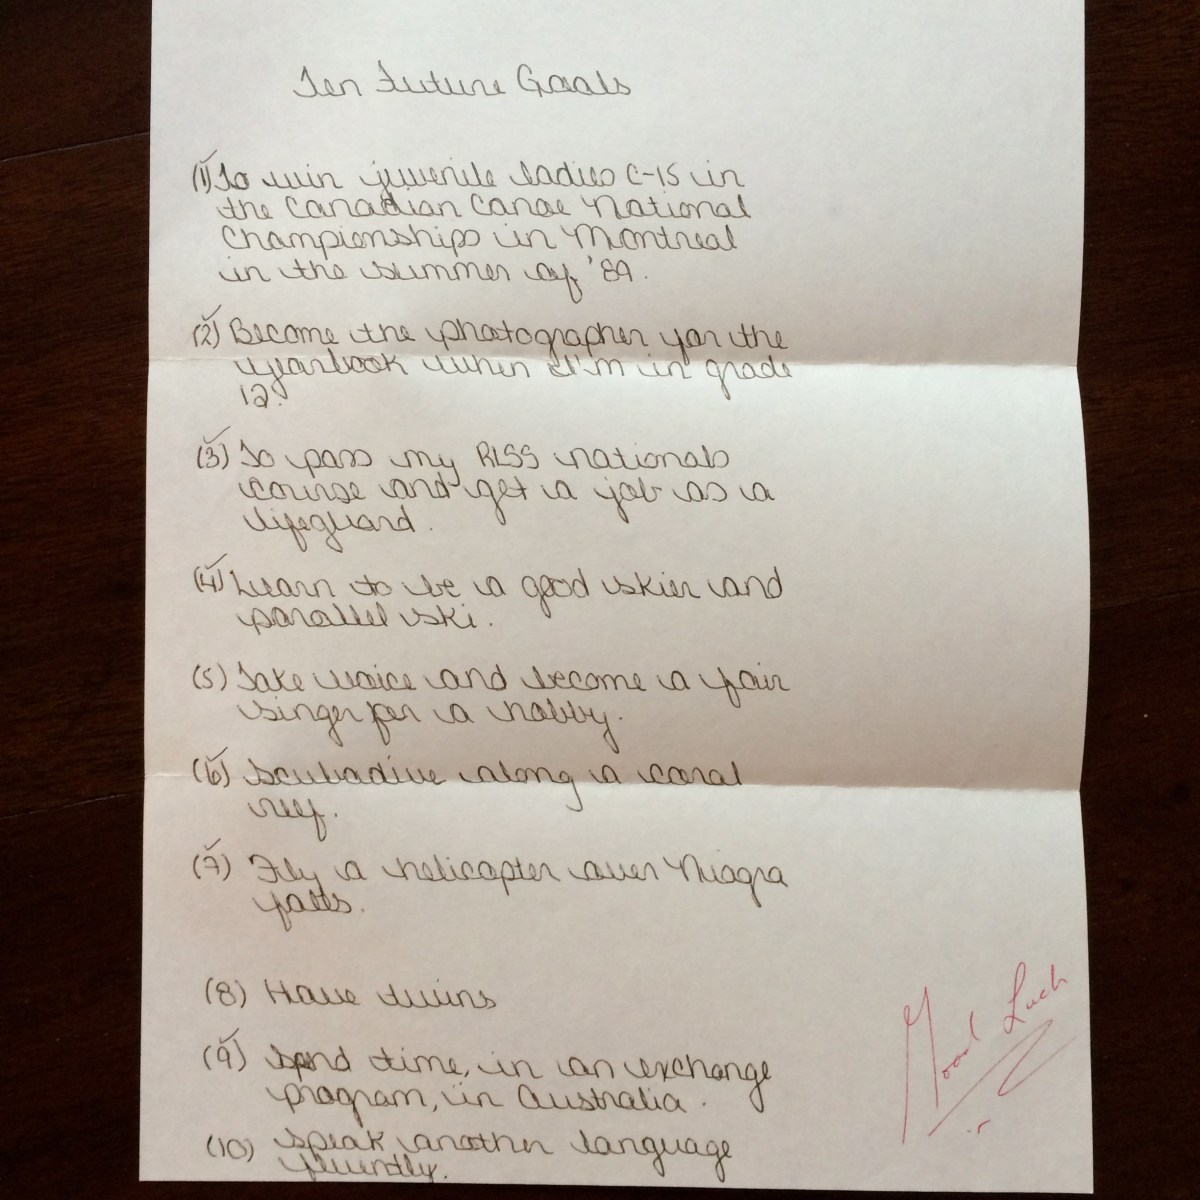 Ten Future Goals
(1) To win juvenile ladies C-15 in
the Canadian Canoe National
Championships in Montreal
in the summer of '89.
(2) Become the photographer for the
yearbook when I'm in grade
12.
(3) To pass my RLSS nationals
course and get a job as a
lifeguard.
(4) Learn to be a good skier and
parallel ski.
(5) Take voice and become a fair
singer for a hobby.
(6) Scubadive along a coral
reef.
(7) Fly a helicopter over Niagra
falls.
(8) Have twins
(9) Spend time, in an exchange
program, in Australia.
(10) Speak another language
fluently.
Good Luck